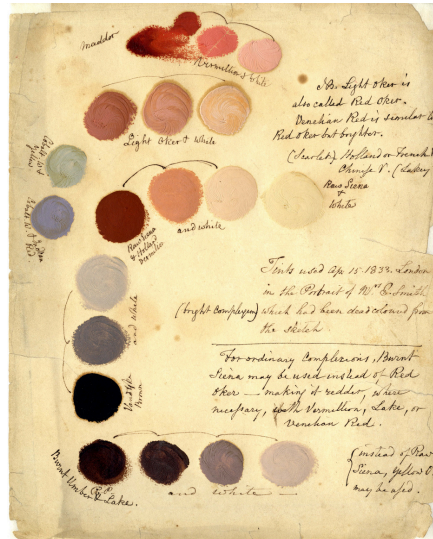 madder
Vermillion & White
Light Oker & White
NB. Light Oker is
also called Red Oker.
Venetian Red is similar to
Red oker but brighter.
(Scarlet) Holland or French
Chinese V. (Lakey
Raw Siena
&
White
and white
Raw Siena
& Holland
Vermilion
Tints used Apr. 15. 1832. London
in the Portrait of E. Smith
(bright Complexion) which had been dead coloured from
the sketch
For ordinary Complexions, Burnt
Siena may be used instead of Red
Oker — making it redder, where
necessary, with Vermillion, Lake, or
Venetian Red.
and White
Vandyke
Brown
Burnt Umber & Lake.
and white
instead of Raw
Siena, Yellow O
may be used.